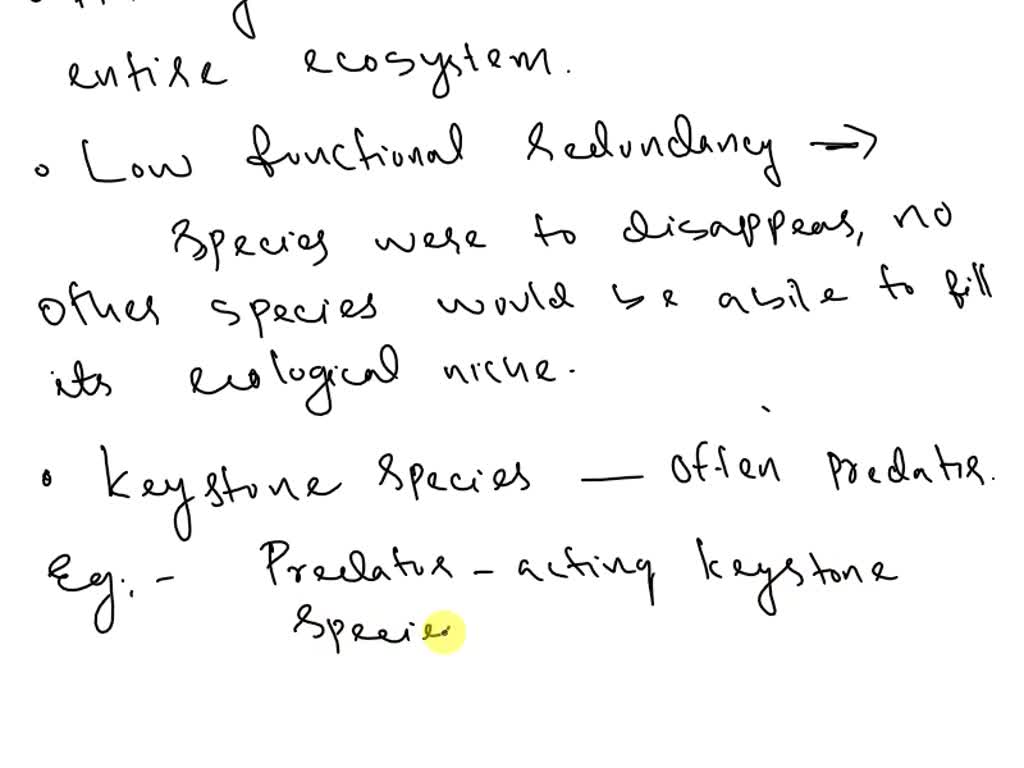 entire ecosystem.
• Low functional redundancy →
species were to disappear, no
other species would be able to fill
its ecological niche.
• Keystone species — often predators.
Eg:- Predator - acting keystone
specie